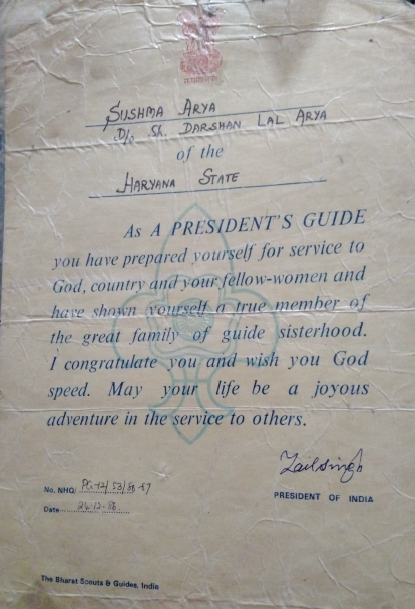 सत्यमेव जयते
SUSHMA ARYA
D/o Sh. DARSHAN LAL ARYA
of the
HARYANA STATE
As A PRESIDENT'S GUIDE
you have prepared yourself for service to
God, country and your fellow-women and
have shown yourself a true member of
the great family of guide sisterhood.
I congratulate you and wish you God
speed. May your life be a joyous
adventure in the service to others.
Zail Singh
No. NHQ/ PG-12/53/86-87
PRESIDENT OF INDIA
Date 24-12-86
The Bharat Scouts & Guides, India